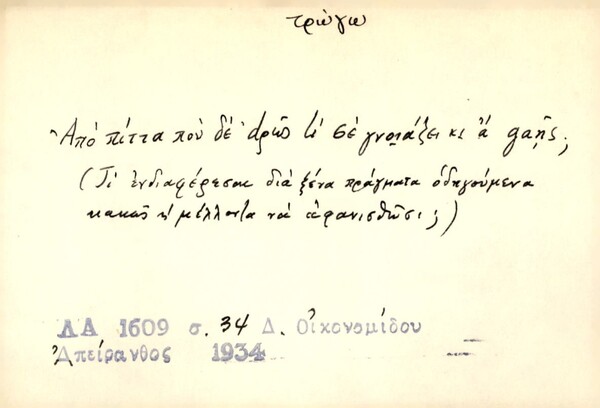 τρώγω
Ἀπό πίττα πού δέ 'dρῶς τί σέ γνοιάζει κι ἄ χαῇς;
(Τί ἐνδιαφέρεσαι διά ξένα πράγματα ὁδηγούμενα
κακῶς ἤ μέλλοντα νά ἀφανισθῶσι;)
ΛΑ 1609 σ. 34 Δ. Οἰκονομίδου
Ἀπείρανθος 1934